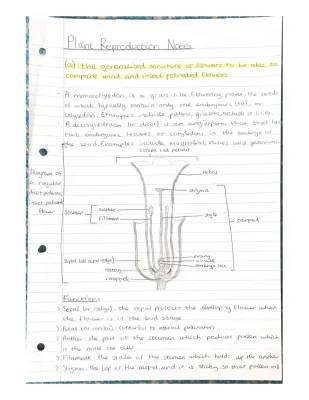 Plant Reproduction Notes
(a) the generalised structure of flowers to be able to
compare wind and insect pollinated flowers
A monocotyledon is a grass-like flowering plant, the seeds
of which typically contain only one embryonic leaf, or
cotyledon. Examples include palms, grasses, orchids & lilies.
A dicotyledon (or dicot) is an angiosperm that has
two embryonic leaves or cotyledons in the embryo of
the seed. Examples include magnolias, roses and geraniums.
Corolla (all petals)
Diagram of
a regular
dicotyledonous
insect pollinated
flower
petal
stigma
stamen
anther
filament
style
carpel
sepal (all sepals calyx)
ovary
ovule
embryo sac
nectary
receptacle
Functions
Sepal (or calyx) - the sepal protects the developing flower when
the flower is in the bud stage
Petal (or corolla) - colourful to attract pollinators
Anther - the part of the stamen which produces pollen which
is the male sex cells.
Filament - the stalk of the stamen which holds up the anther
Stigma - the top of the carpel and it is sticky so that pollen will